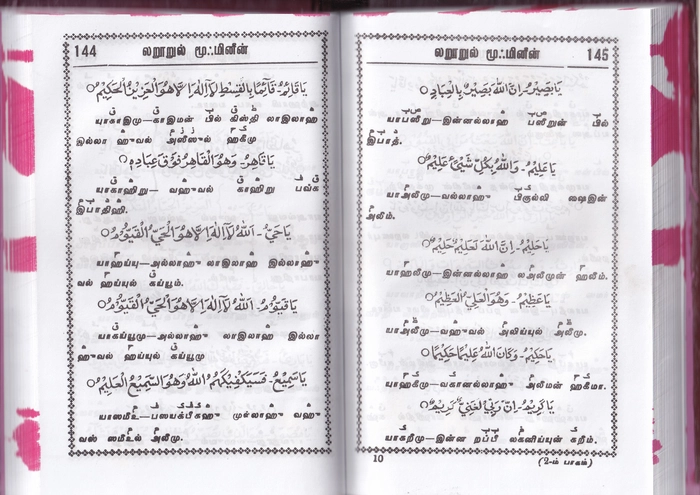 144 லறூறுல் மூஃமினீன்
يَا قَائِمُ قَآئِمًا بِالْقِسْطِ لَآ اِلٰهَ اِلَّا هُوَ الْعَزِيْزُ الْحَكِيْمُ
யாகாஇமு—காஇமன் பில் கிஸ்தி லாஇலாஹ
இல்லா ஹுவல் அஸீஸுல் ஹகீமு
يَا قَاهِرُ - وَهُوَ الْقَاهِرُ فَوْقَ عِبَادِهِ
யாகாஹிறு — வஹுவல் காஹிறு பவ்க
இபாதிஹி.
يَا حَيُّ - اَللهُ لَآ اِلٰهَ اِلَّا هُوَ الْحَيُّ الْقَيُّوْمُ
யாஹய்யு—அல்லாஹு லாஇலாஹ இல்லாஹு
வல் ஹய்யுல் கய்யூம்.
يَا قَيُّوْمُ - اَللهُ لَآ اِلٰهَ اِلَّا هُوَ الْحَيُّ الْقَيُّوْمُ
யாகய்யூமு—அல்லாஹு லாஇலாஹ இல்லா
ஹுவல் ஹய்யுல் கய்யூமு
يَا سَمِيْعُ - فَسَيَكْفِيْكَهُمُ اللهُ وَهُوَ السَّمِيْعُ الْعَلِيْمُ
யாஸமீஉ—பஸயக்பீகஹு முல்லாஹு வஹு
வஸ் ஸமீஉல் அலீமு.
லறூறுல் மூஃமினீன் 145
يَا بَصِيْرُ - اِنَّ اللهَ بَصِيْرٌ بِالْعِبَادِ
யாபஸீறு—இன்னல்லாஹ பஸீறுன் பில்
இபாத்.
يَا عَلِيْمُ - وَاللهُ بِكُلِّ شَيْئٍ عَلِيْمٌ
யாஅலீமு—வல்லாஹு பிகுல்லி ஷைஇன்
அலீம்.
يَا حَلِيْمُ - اِنَّ اللهَ لَعَلِيْمٌ حَلِيْمٌ
யாஹலீமு—இன்னல்லாஹ லஅலீமுன் ஹலீம்.
يَا عَظِيْمُ - وَهُوَ الْعَلِيُّ الْعَظِيْمُ
யாஅலீமு—வஹுவல் அலிய்யுல் அலீமு.
يَا حَكِيْمُ - وَكَانَ اللهُ عَلِيْمًا حَكِيْمًا
யாஹகீமு—வகானல்லாஹு அலீமன் ஹகீமா.
يَا كَرِيْمُ - اِنَّ رَبِّيْ غَنِيٌّ كَرِيْمٌ
யாகறீமு—இன்ன றப்பீ லகனிய்யுன் கறீம்.
10 (2-ம் பாகம்)